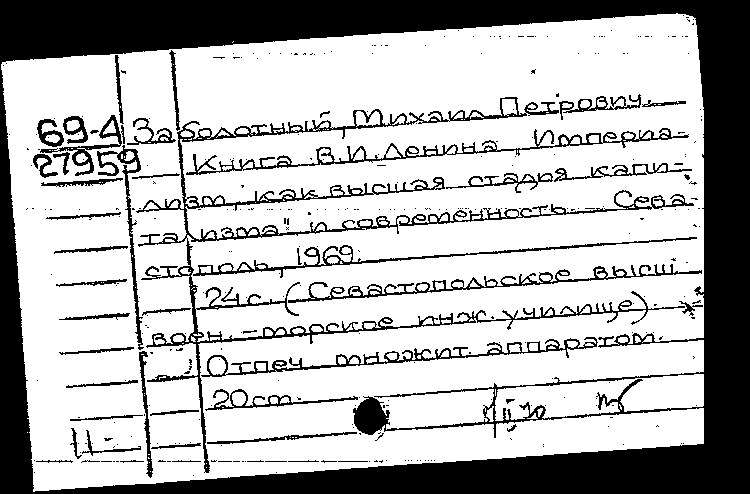 69-4 Заболотный, Михаил Петрович.
27959 Книга В.И. Ленина „Империа-
лизм, как высшая стадия капи-
тализма" и современность. Сева-
стополь, 1969.
24 с. (Севастопольское высш.
воен.-морское инж. училище).
Отпеч. множит. аппаратом.
20 см.
11-